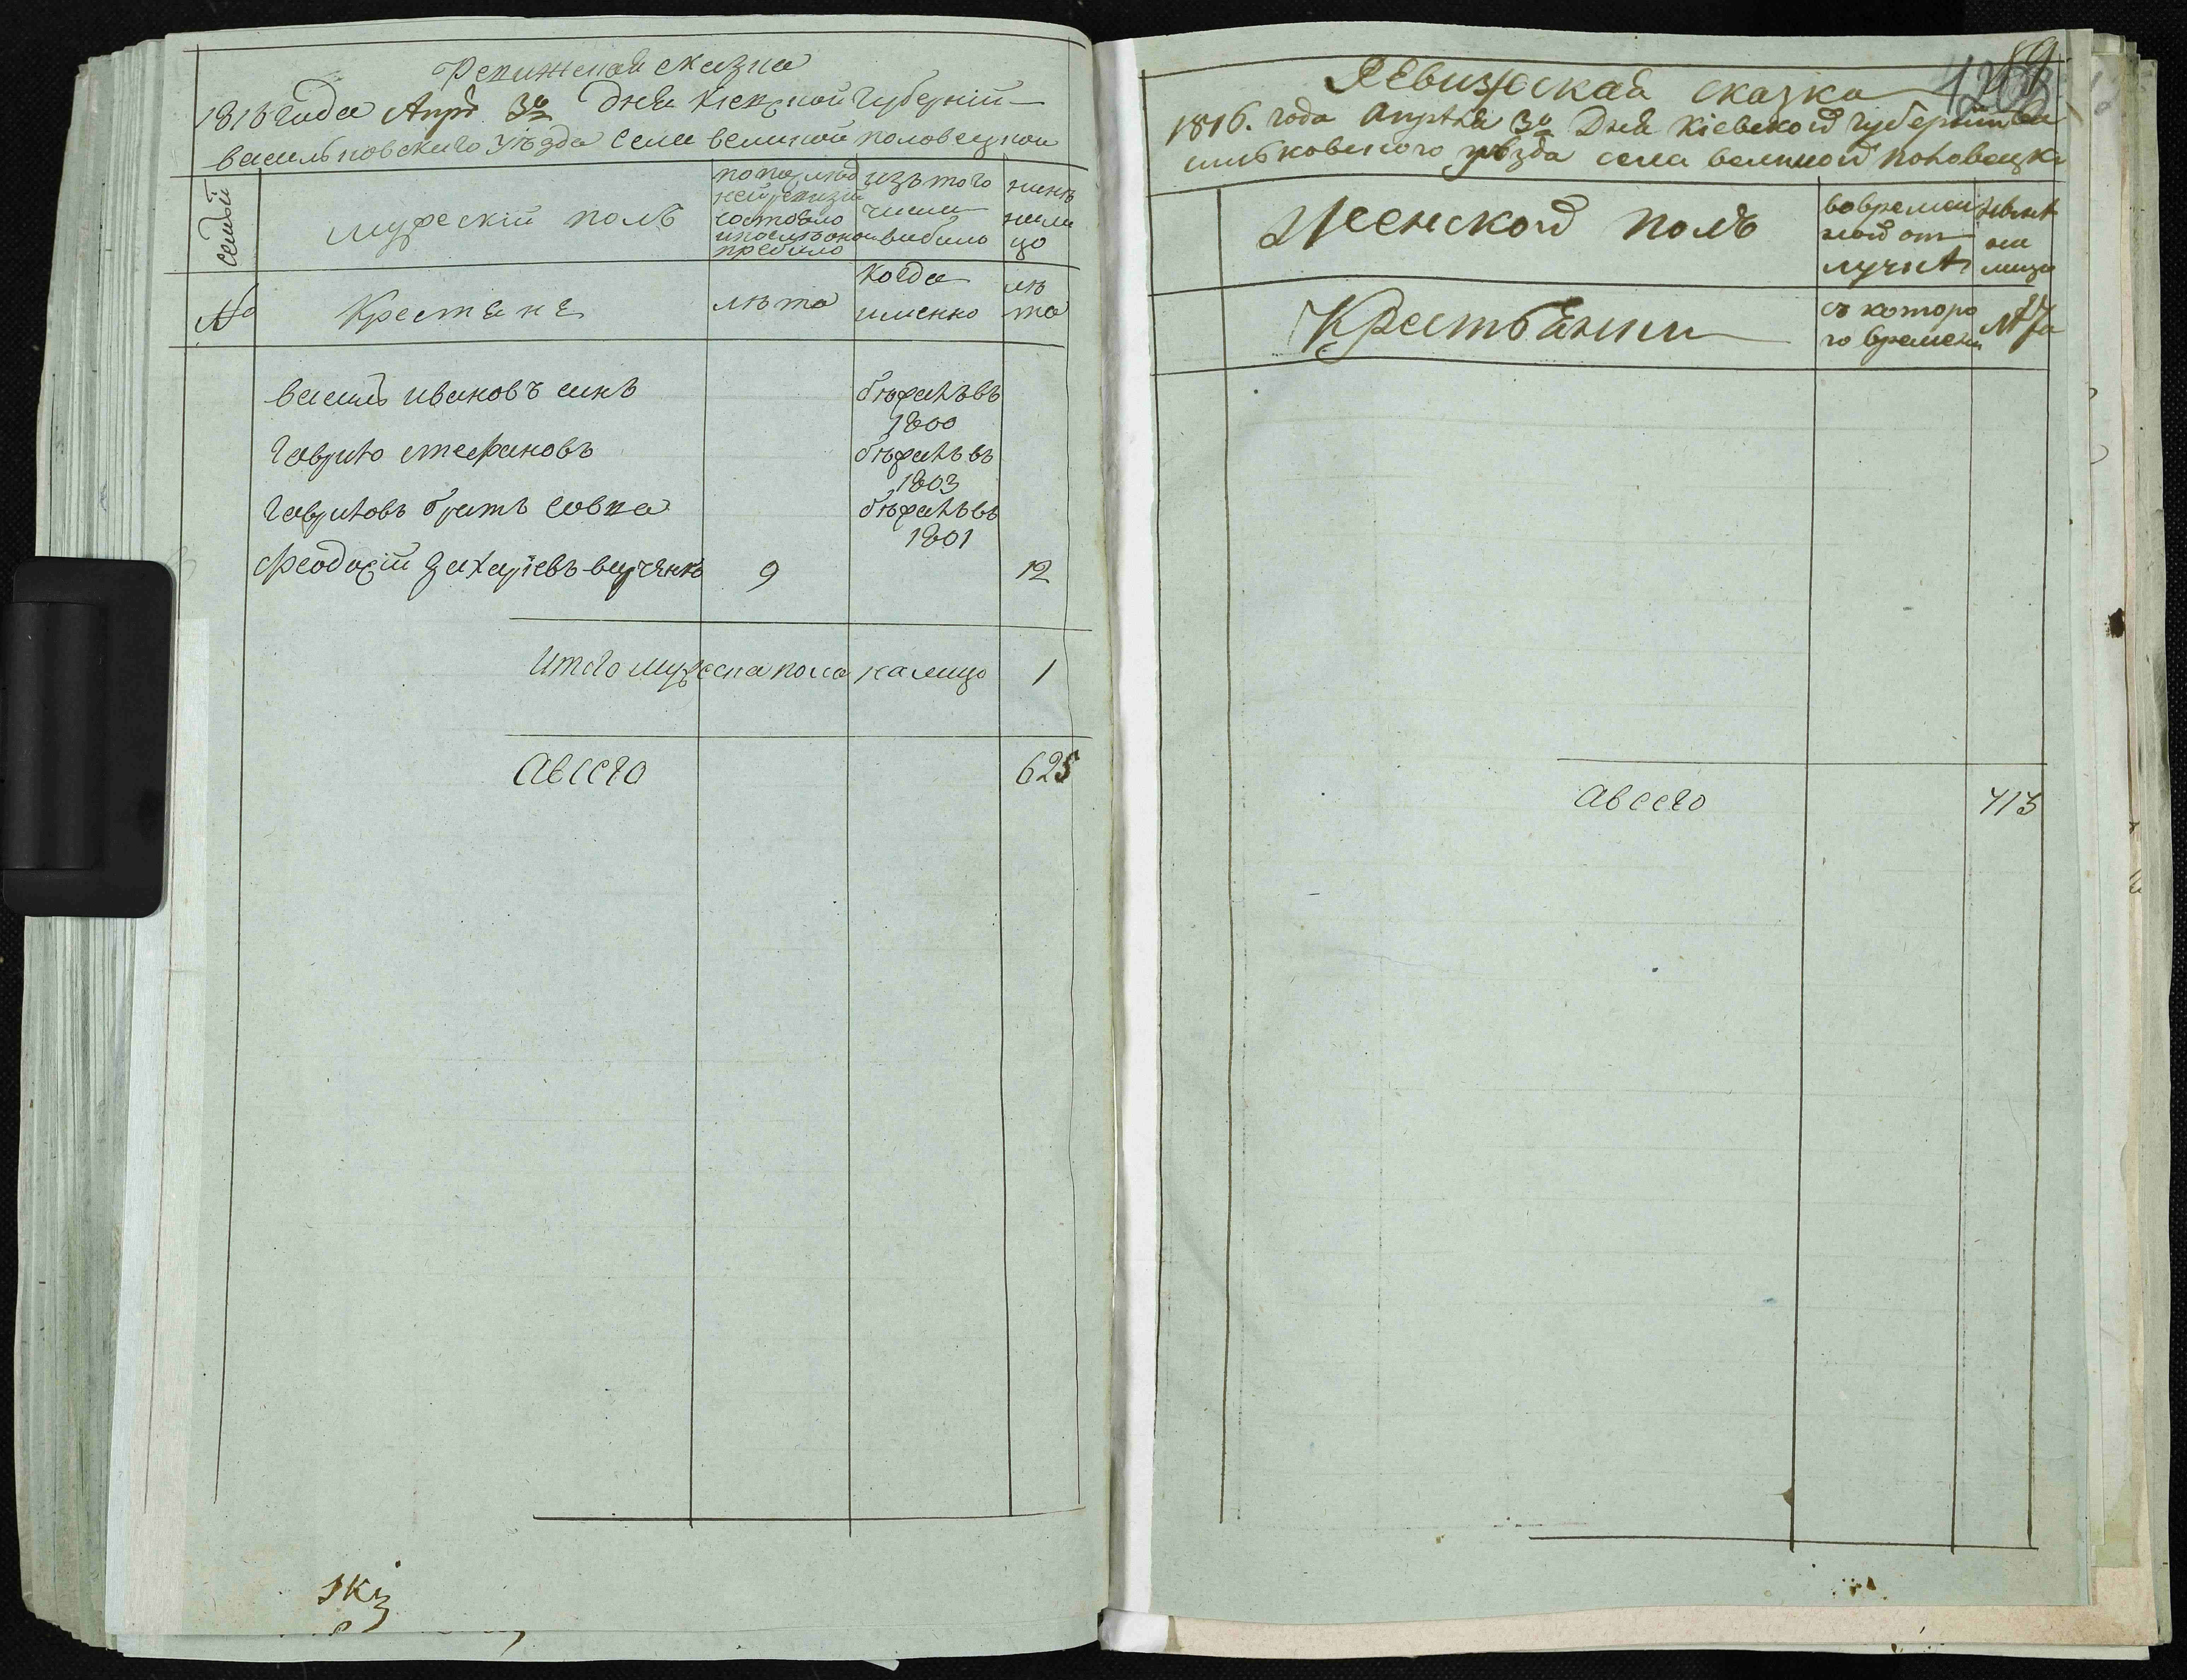 Ревижская сказка
1816 года Апрѣ. 30 Дня Кіевской Губерніи
васильковского уѣзда села великой половецкой
семьи
мужескій полъ
по послѣд
ней ревизіи
состояло
и после оной
прибыло
изъ того
числа
выбыло
нинѣ
на ли
цо
№
Крестяне
лѣта
когда
именно
лѣ
та
василь ивановъ синъ
бѣжалъ въ
1800
гаврило стефановъ
бѣжалъ въ
1803
гавриловъ братъ совка
бѣжалъ въ
1801
Феодосій Захаріевъ
9
12
Итого мужеска пола на лицо
1
А всего
625
Ревизская сказка
1816. года апрѣля 30 Дня Кіевской губерніи Ва
сильковского уѣзда села великой половецк
Женской полъ
во времен
ной от
лучкѣ
нинѣ
на
лицо
Крестьянки
съ которо
го времени
лѣта
А всего
713